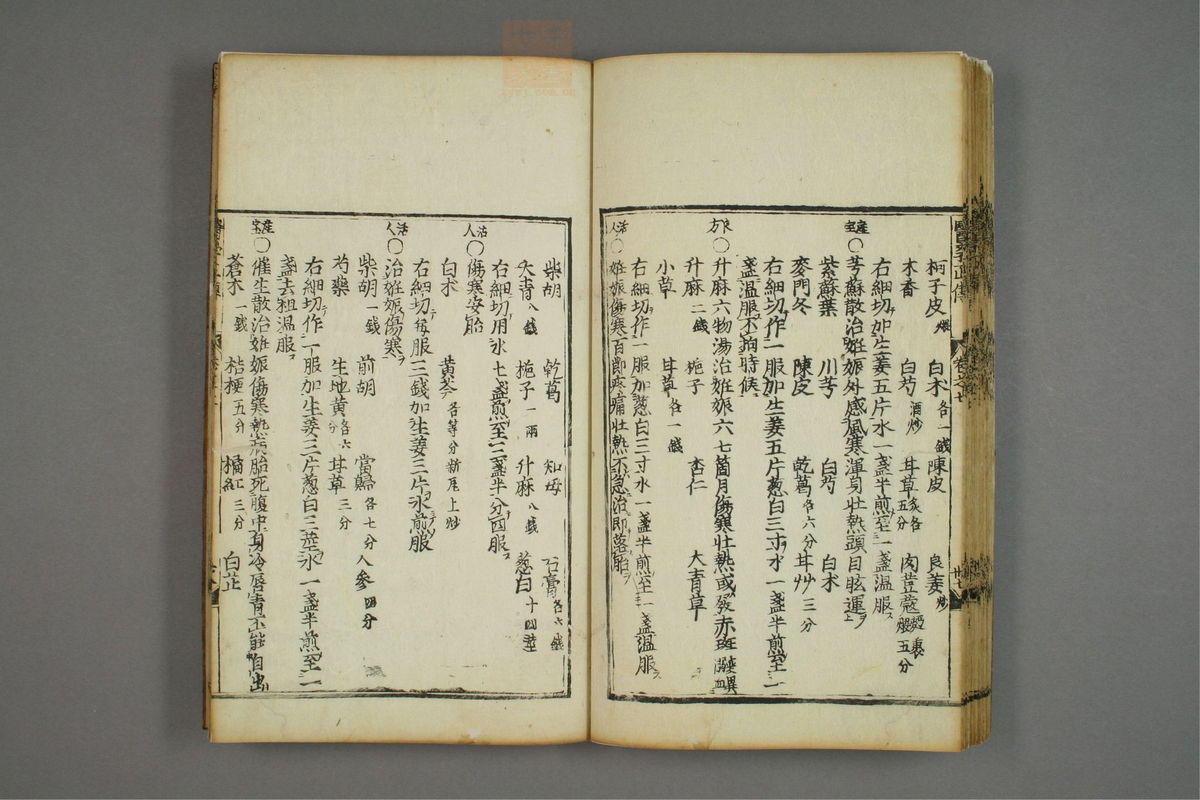 柯子皮煨 白朮各一錢 陳皮 良姜炒
木香 白芍酒炒 甘草炙各五分 肉荳蔻麪裹煨五分
右細切加生姜五片水一盞半煎至一盞温服ス
産宝 〇芎蘇散治姙娠外感風寒渾身壮熱頭目眩運上ヲ
紫蘇葉 川芎 白芍 白朮
麥門冬 陳皮 乾葛各六分 甘艸三分
右細切作一服加生姜五片葱白三寸水一盞半煎至一
盞温服不拘時候
良方 〇升麻六物湯治姙娠六七箇月傷寒壮熱或發赤斑變異溺血
升麻二錢 梔子 杏仁 大青草
小草 甘草各一錢
右細切作一服加葱白三寸水一盞半煎至一盞温服ス
活人 〇姙娠傷寒百節疼痛壮熱不急治即落胎
柴胡 乾葛 知母 石膏各六錢
大青八錢 梔子一兩 升麻八錢 葱白十四莖
右細切用水七盞煎至三盞半分四服ス
活人 〇傷寒安胎
白朮 黄芩各等分新尾上炒
右細切毎服三錢加生姜三片水煎服
活人 〇治姙娠傷寒ヲ
柴胡一錢 前胡 當歸各七分 人参四分
芍藥 生地黄各六分 甘草三分
右細切作一服加生姜三片葱白三莖水一盞半煎至一
盞去粗温服ス
産宝 〇催生散治姙娠傷寒熱病胎死腹中身冷唇青不能自出
蒼朮一錢 桔梗五分 橘紅三分 白芷